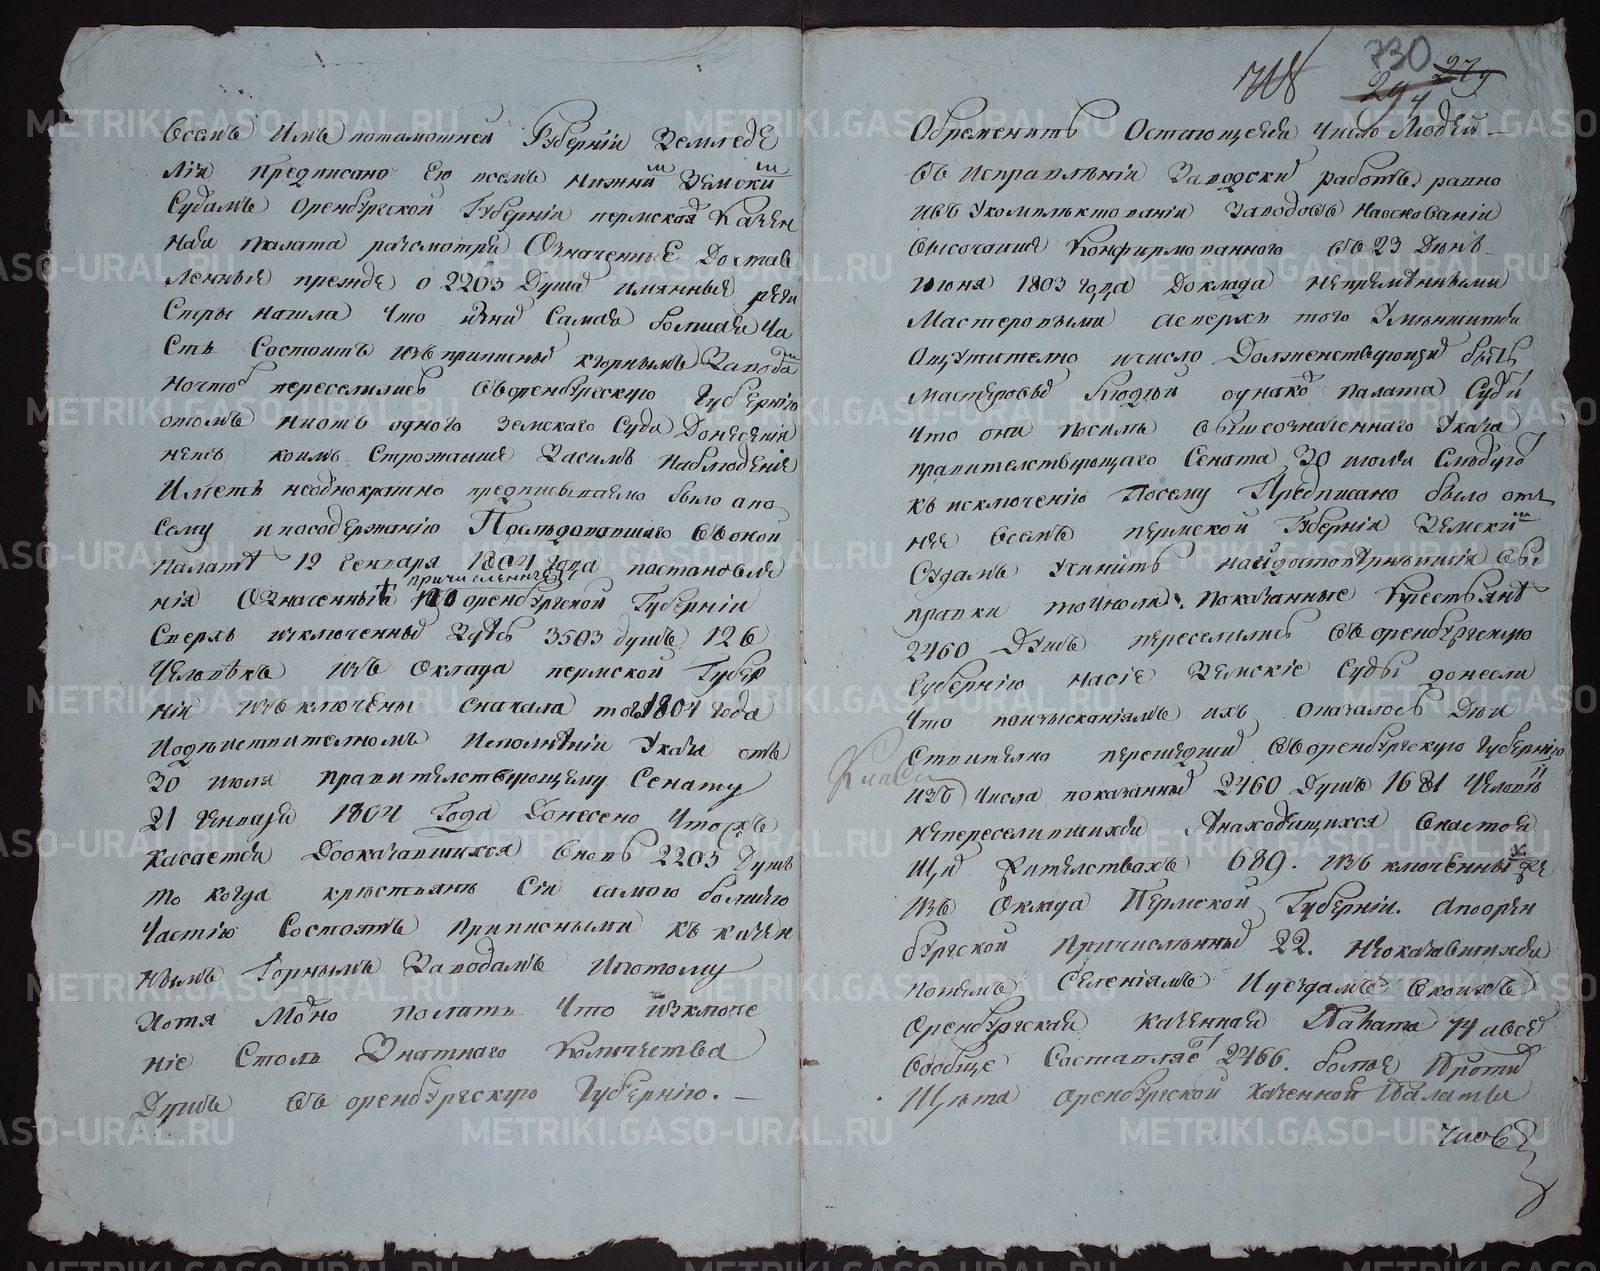 всемъ имъ потамошней Губерніи Землede
лія предписано Ею всемъ нижнимъ Земскимъ
Судамъ Оренбургской Губерніи пермская Казен
ная палата разсмотря Означенные Достав
ленныя прежде о 2203 Душах имянныя реги
Стры нашла что изних Самая большая ча
сть Состоитъ изъ приписных кгорнымъ Заводам
ночтоб переселились въоренбургскую губернію
отомъ ниотъ одного Земскаго Суда Донесенія
нетъ коимъ Строжайше Засимъ наблюденіе
Иметь неоднократно предписываемо было апо
сему ипосодержанію Последовавшаго въоной
палате 19 генваря 1804 года постановле
нія Означенных причисленных по оренбургской Губерніи
сверхъ изключенных Здесь 3503 душъ 126
человекъ изъ Оклада пермской Губер
ніи изъключены сначала того 1804 года
Иодействителномъ Исполненіи Указа отъ
30 июля правителствующему Сенату
21 генваря 1804 Года Донесено что
касается Дооказавшихся вновь 2203 Душъ
то когда крестьянъ Сіи самою большею
частію Состоятъ приписными къ казен
нымъ Горнымъ Заводамъ Ипотому
Хотя Можно полагать что изключе
ніе Столь Знатнаго Количества
Душъ въ оренбургскую губернію.
730
718
294 279
Обременитъ Остающееся число Людей
въ исправленіи Заводских работъ равно
ивъ Укомплектованіи Заводовъ Наоснованіи
высочайше Конфирмованного въ 23 День
июня 1803 года Доклада Непременными
Мастеровыми асверхъ того Уменшится
ощутително ичисло Долженствующих быть
мастеровых Людей однако палата Судя
что они посиле вышеозначеннаго Указа
правителствующаго Сената 30 июля Следуют
къ исключенію Посему Предписано было отъ
нея всемъ пермской Губерніи Земским
Судамъ Учинить Наидостоверныйшія вы
правки точноли показанные крестьянъ
2460 Душъ переселились въоренбургскую
Губернію Насіе Земскіе Суды донесли
что поизысканіямъ ихъ оказалось Дей
ствително перешедших въоренбургскую губернію
Класи
изъ числа показанных 2460 Душъ 1681 человекъ
непереселившихся Анаходящихся внастоя
щих жителствахъ 689. изъключенных уже
изъ Оклада Пермской Губерніи. апоорен
бургской Причисленных 22. неоказавшихся
потемъ Селеніямъ Иуездамъ Окоихъ
Оренбургская казенная Палата 74 авсе
вообще Составляет 2466. более Против
Щета оренбургской казенной Палаты